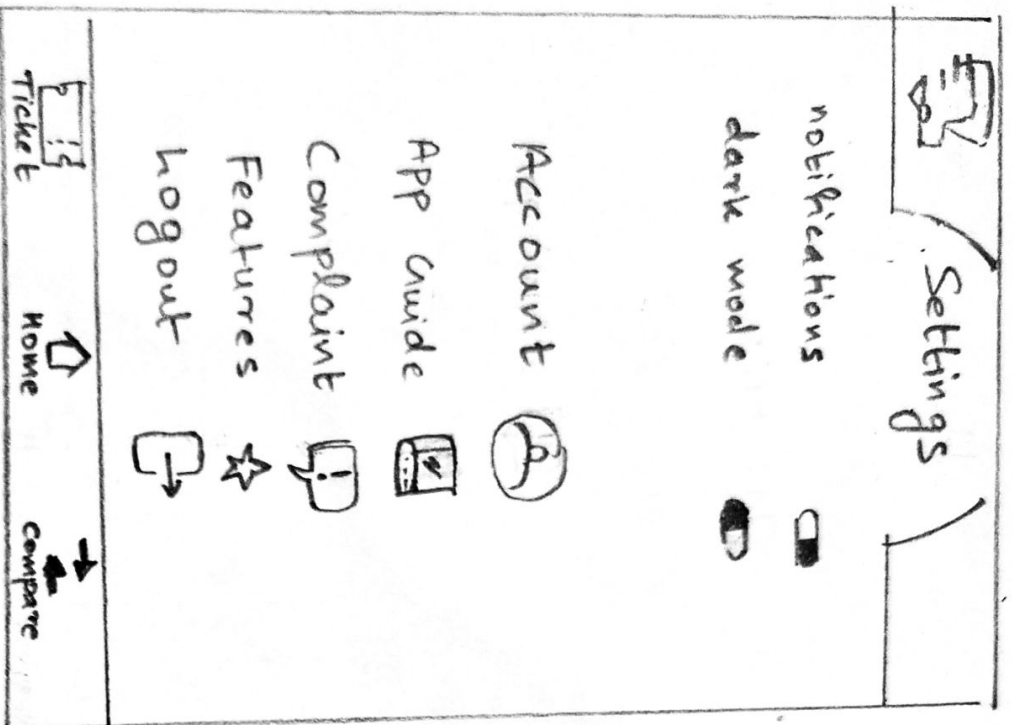 Settings
notifications
dark mode
Account
App Guide
Complaint
Features
Logout
Ticket
Home
Compare